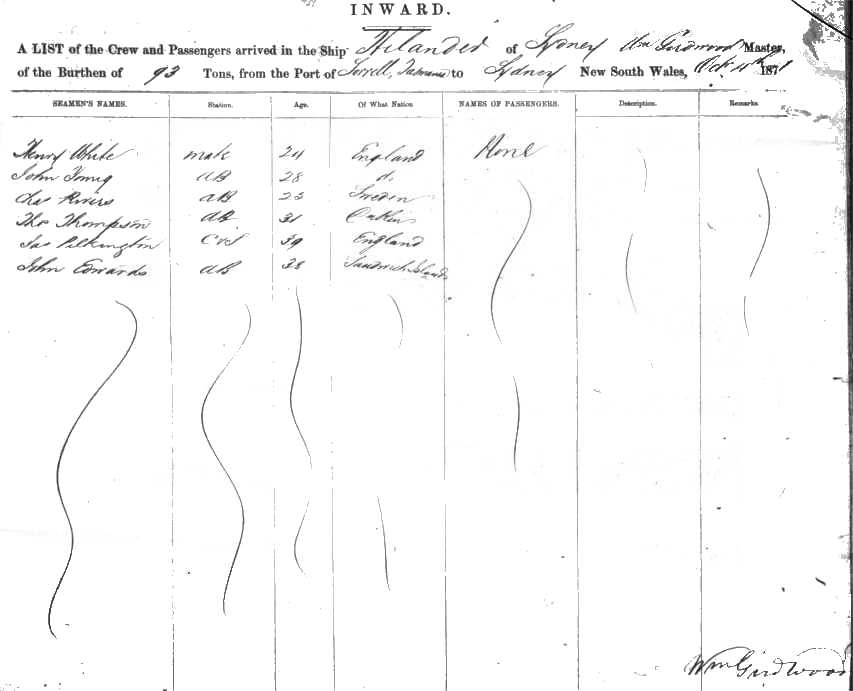 INWARD.
A LIST of the Crew and Passengers arrived in the Ship Hilander of Sydney Wm Girdwood Master,
of the Burthen of 93 Tons, from the Port of Sorrell, Tasmania to Sydney New South Wales, Oct 4th 1871
SEAMEN'S NAMES. Station. Age. Of What Nation NAMES OF PASSENGERS. Description. Remarks
Henry White mate 24 England None
John Young AB 28 do
Chas Rivers AB 25 Sweden
Tho Thompson AB 31
Jas Pilkington C & S 39 England
John Edwards AB 38 Sandwich Islands
Wm Girdwood